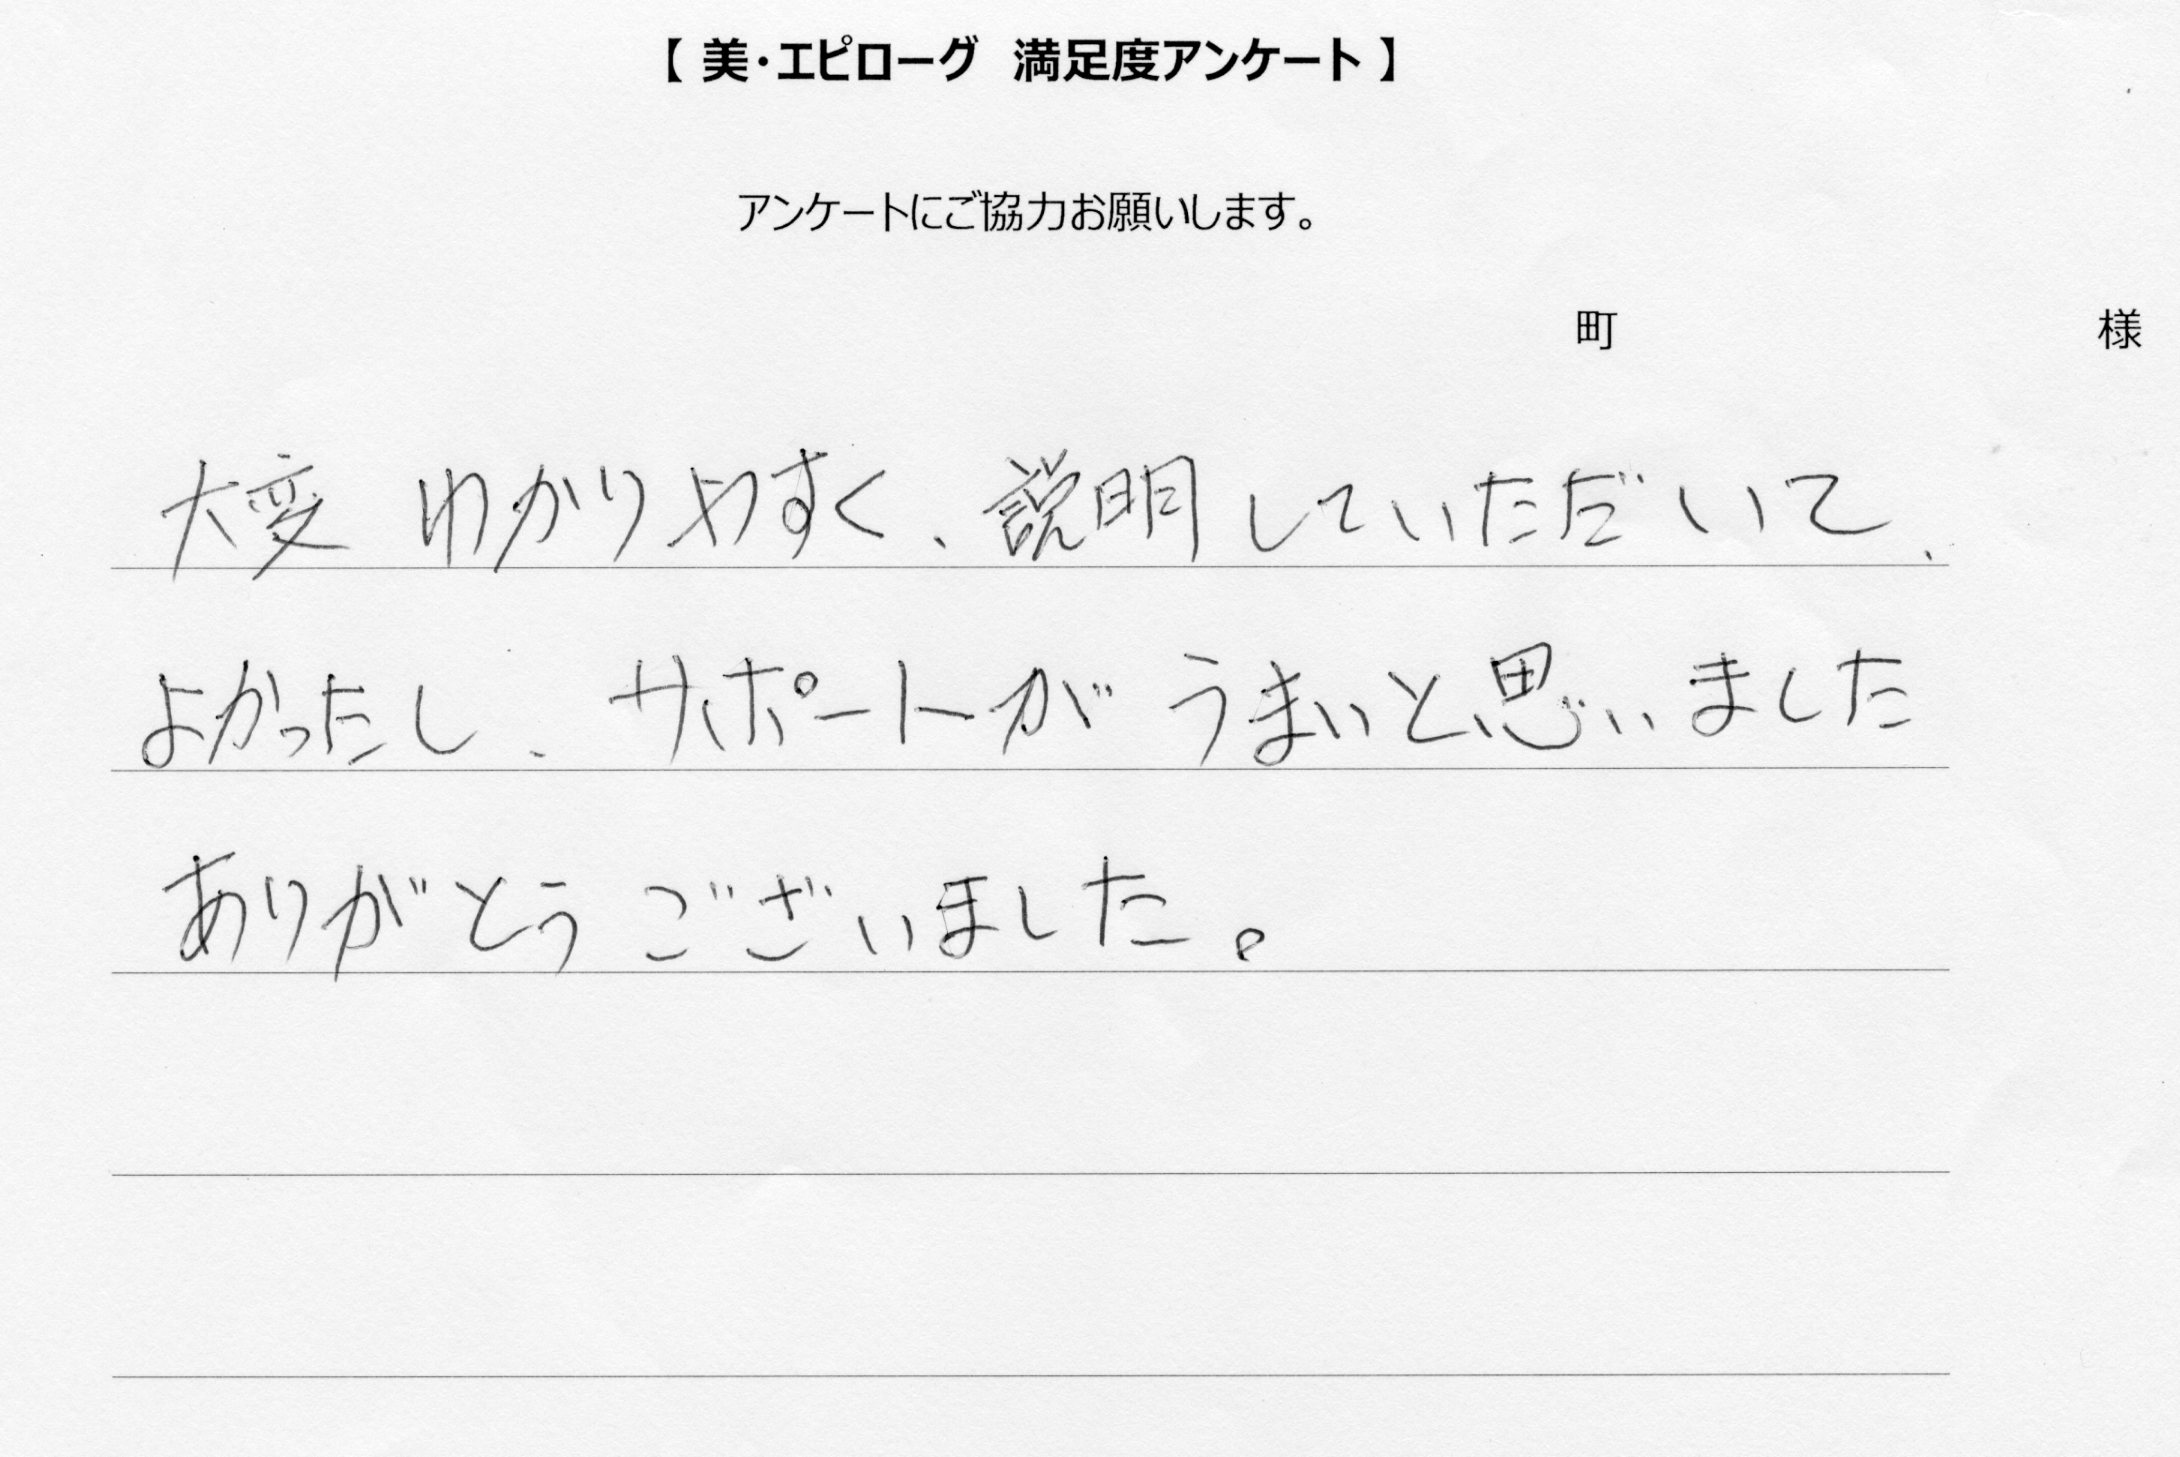 【 美・エピローグ　満足度アンケート 】
アンケートにご協力お願いします。
町　様
大変 わかりやすく、説明していただいて、
よかったし、サポートが うまいと思いました
ありがとうございました。